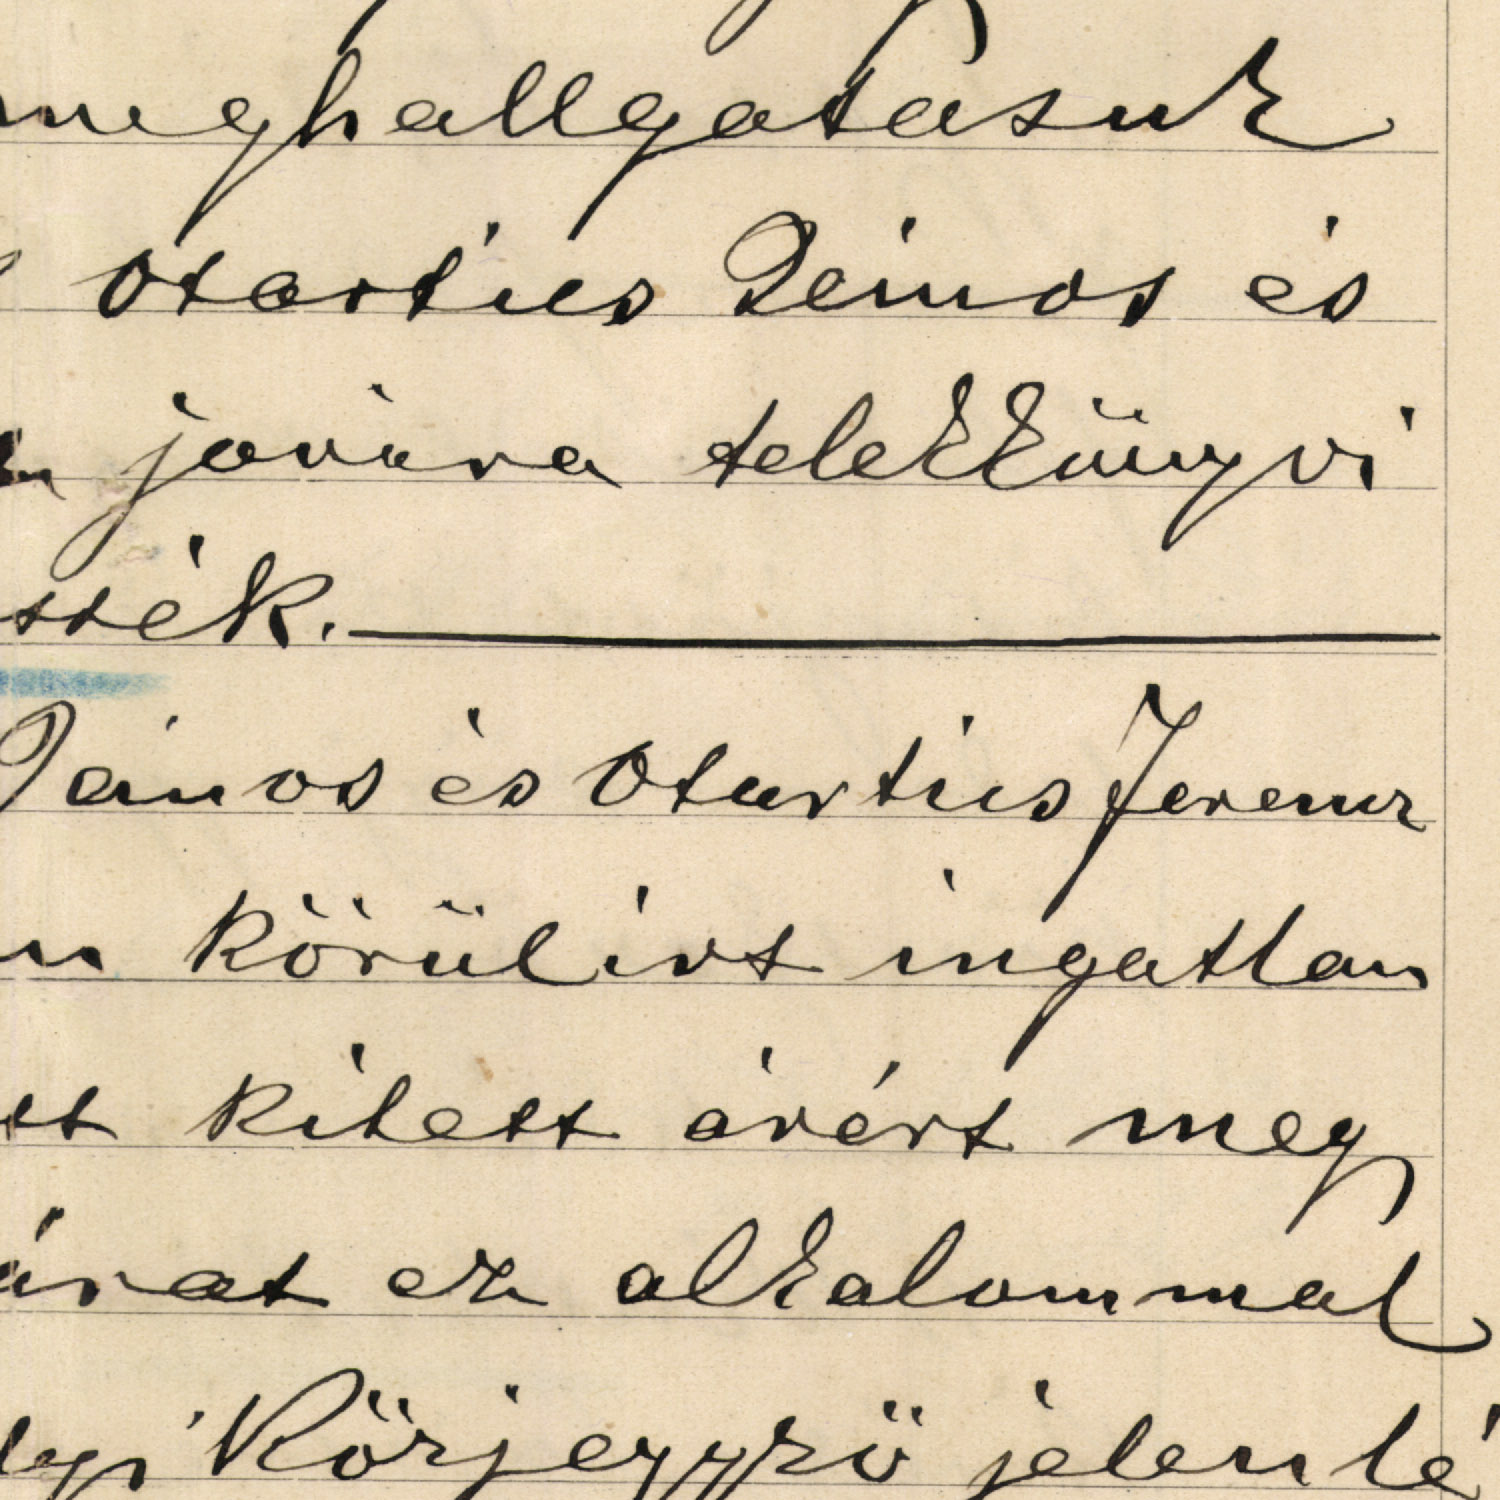 meghallgatásuk
Otártics János és
javára telekkönyvi
ssék.
János és Otártics Ferencz
körülirt ingatlan
kitett árért meg
árat ez alkalommal
Körjegyző jelenlé